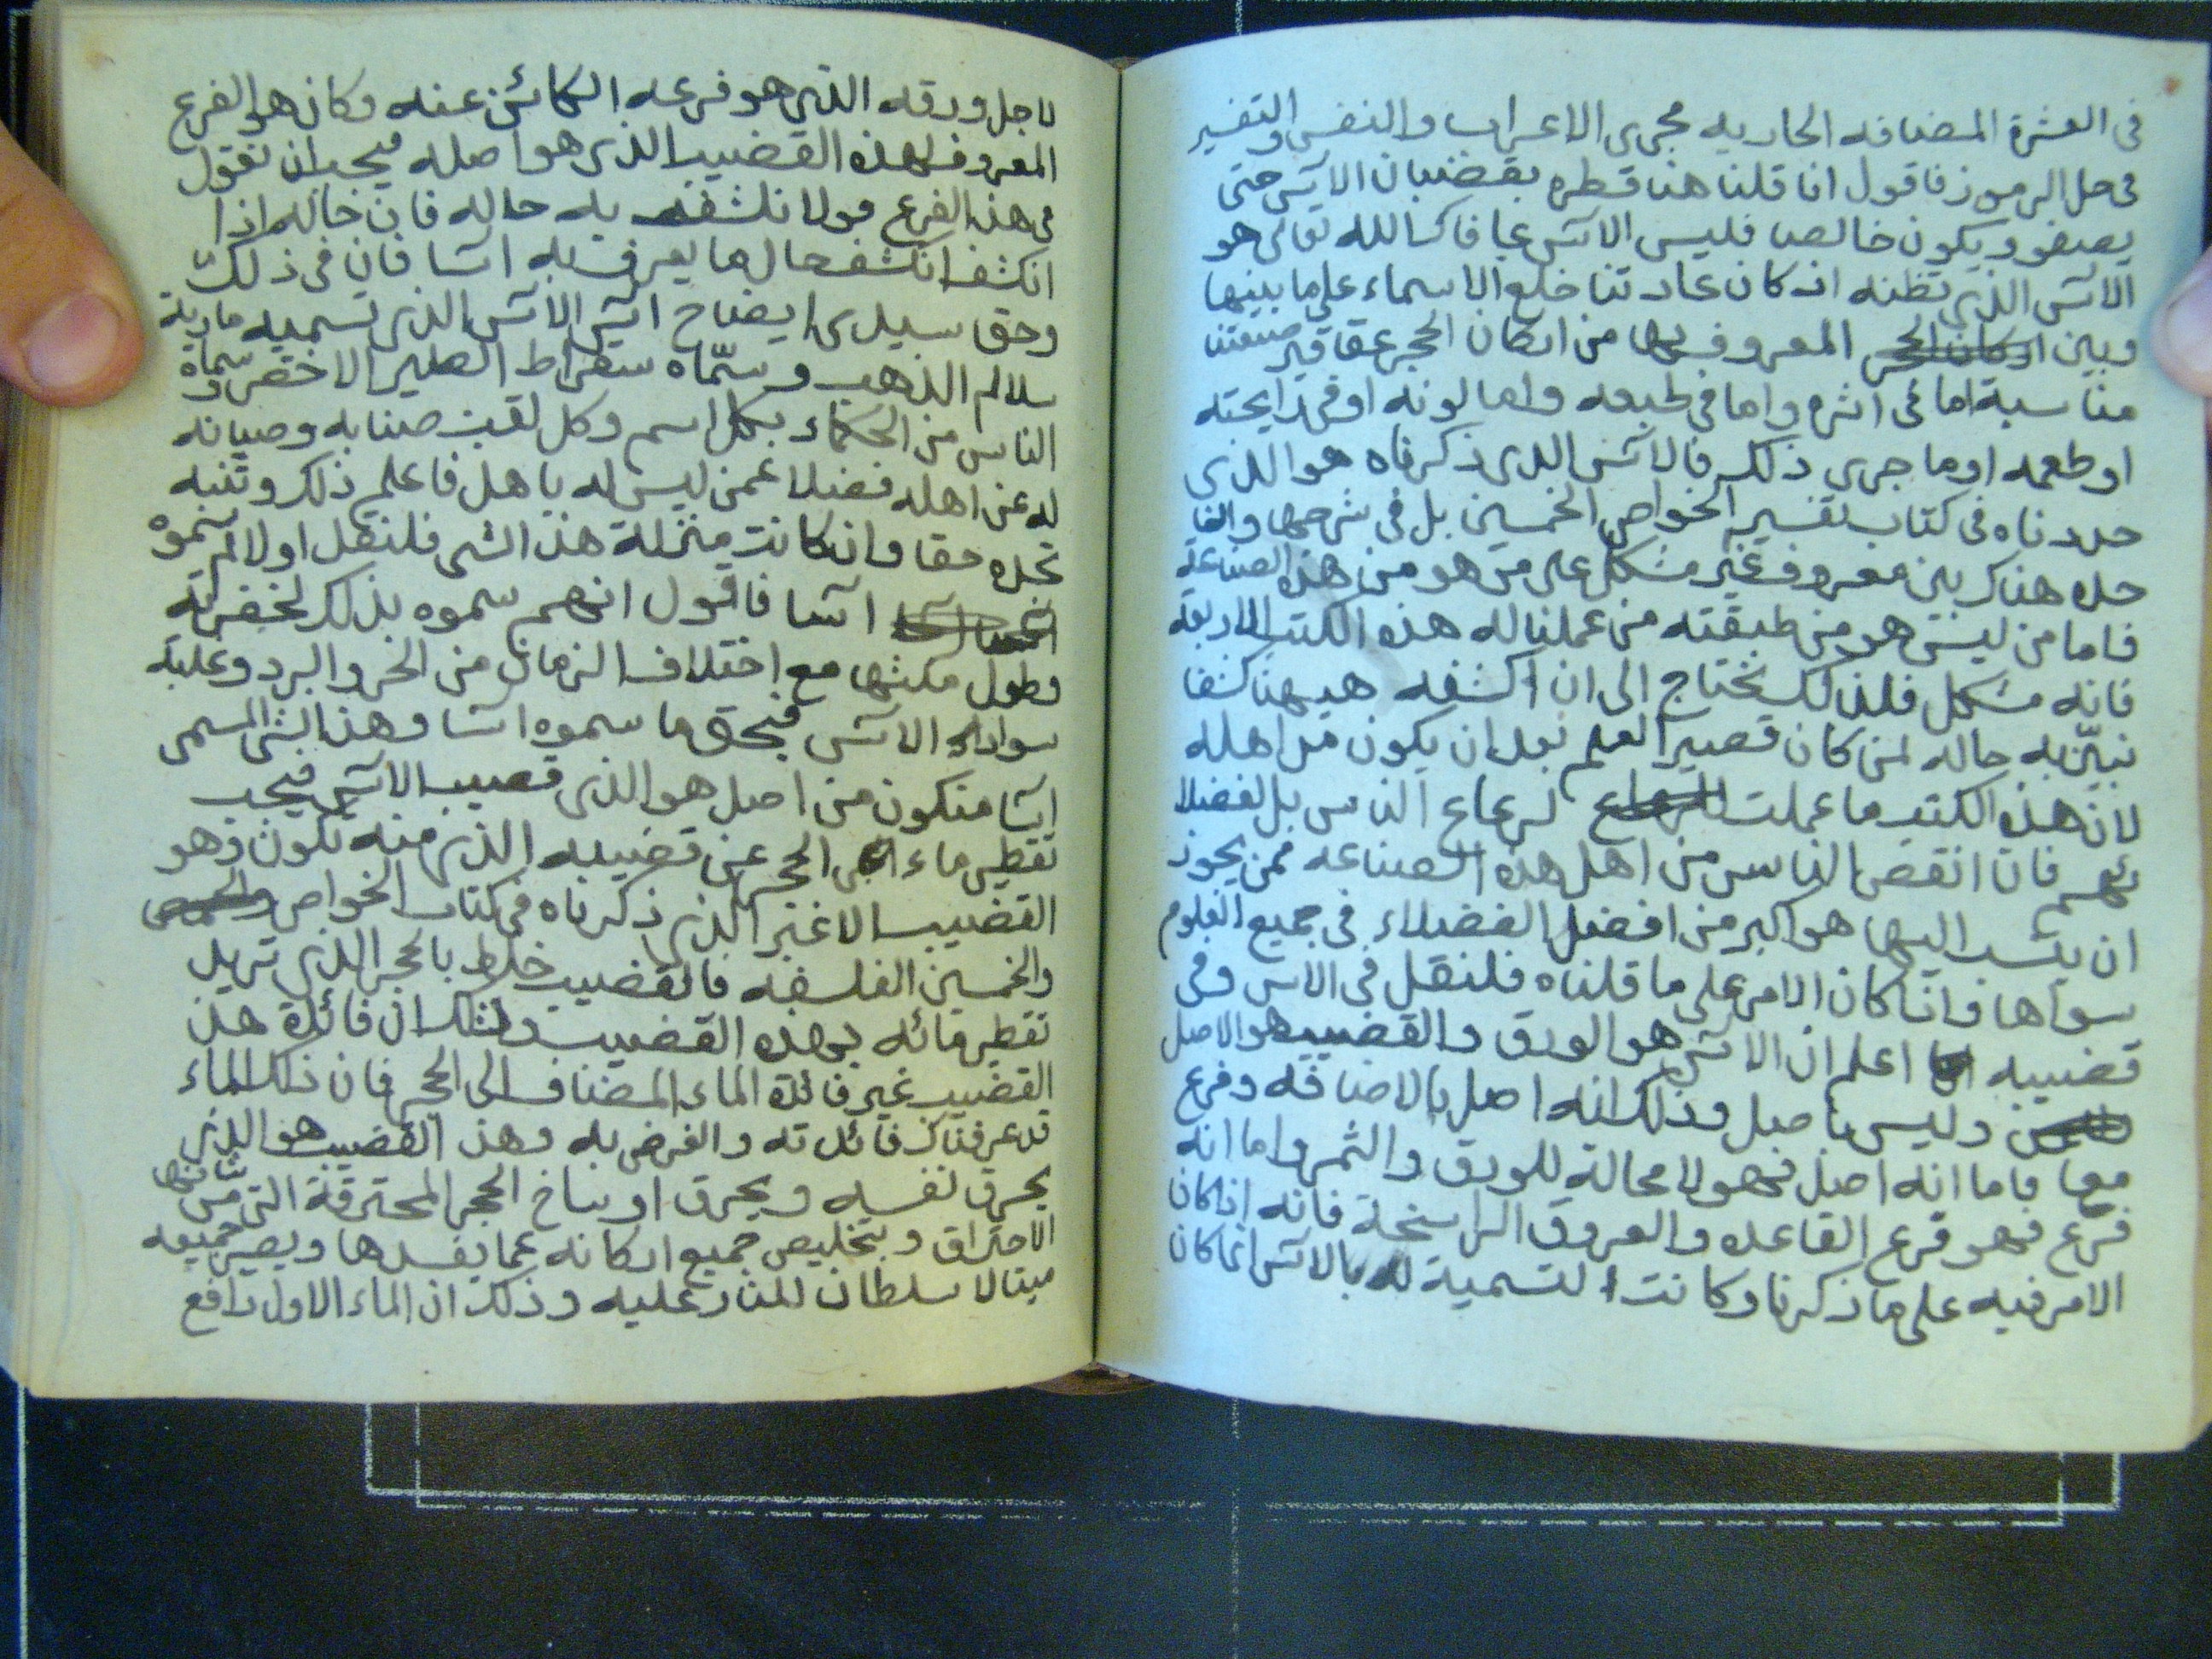 فى العشرة المضافه الجاريه مجرى الاعراب والنفس والتفسير
فى حل الرموز فاقول انا قلنا هنا قطره بقضبان الآس حتى
يصفو ويكون خالصا فليس الآس عافاك الله تعالى هو
الآس الذى تظنه اذ كان عادتنا خلع الاسماء على ما بينها
وبين المعروف بها من اركان الحجر عقاقير صنعتنا
مناسبة اما فى اثره واما فى طبعه واما لونه او فى رايحته
او طعمه او ما جرى ذلك فالآس الذى ذكرناه هو الذى
حددناه فى كتاب تفسير الخواص الخمسين بل فى شرحها
حده هناك بين معروف غير مشكل على من هو من هذه الصناعة
فاما من ليس هو من طبقته من عملنا له هذه الكتب الاربعة
فانه مشكل فلذلك نحتاج الى ان اكشفه هيهنا كشفا
نبيّن به حاله لمن كان قصير العلم بعد ان يكون من اهله
لان هذه الكتب ما عملت لرعاع الناس بل لفضلا
ئهم فان انقص الناس من اهل هذه الصناعه ممن يجوز
ان ينسب اليها هو اكبر من افضل الفضلاء فى جميع العلوم
سواها واذا كان الامر على ما قلناه فلنقل فى الآس وفى
قضيبه اعلم ان الآس هو الورق والقضيب هو الاصل
وليس باصل وذلك انه اصل بالاضافه وفرع
معا فاما انه اصل فهو لا محالة للورق والثمر واما انه
فرع فهو فرع القاعده والعروق الراسخة فانه اذا كان
الامر فيه على ما ذكرنا وكانت التسمية له بالآس انما كان
لاجل ورقه الذى هو فرعه الكائن عنه وكان هو الفرع
المعروف لهذه القضيب الذى هو اصله فيجب ان نقول
فى هذا الفرع قولا نكشف به حاله فان حاله اذا
انكشف انكشف حال ما يعرف به اسا فان فى ذلك
وحق سيدى ايضاح اس الآس الذى تسميه مارية
سلالم الذهب وسمّاه سقراط الطير الاخضر وسماه
الناس من الحكماء بكل اسم وكل لقب ضنا به وصيانه
له عن اهله فضلا عمن ليس له باهل فاعلم ذلك وتنبه
تجده حقا واذا كانت منزلة هذا الشى فلنقل اولا لم سموه
اسا فاقول انهم سموه بذلك لخضرته
وطول مكثها مع اختلاف الزمان من الحر والبرد وعلية
سواد الآس فبحق ما سموه اسا وهذا الشى المسمى
اسا متكون من اصل هو الذى قضيب الآس فيجب
تقطير ماء الحجر عن قضيبه الذى منه تكون وهو
القضيب الاغبر الذى ذكرناه فى كتاب الخواص
والخمسين الفلسفه فالقضيب خلط بالحجر الذى تريد
تقطير مائه بهذه القضيب وذلك ان فائدة هذا
القضيب غير فائدة الماء المضاف الى الحجر فان ذلك الماء
قد عرفناك فائدته والغرض به وهذا القضيب هو الذى
يحرق نفسه ويحرق اوساخ الحجر المحترقة التى من شانها
الاحتراق وبتخليص جميع اركانه عما يفسدها ويصير جميعه
ميتا لا سلطان للنار عليه وذلك ان الماء الاول دافع